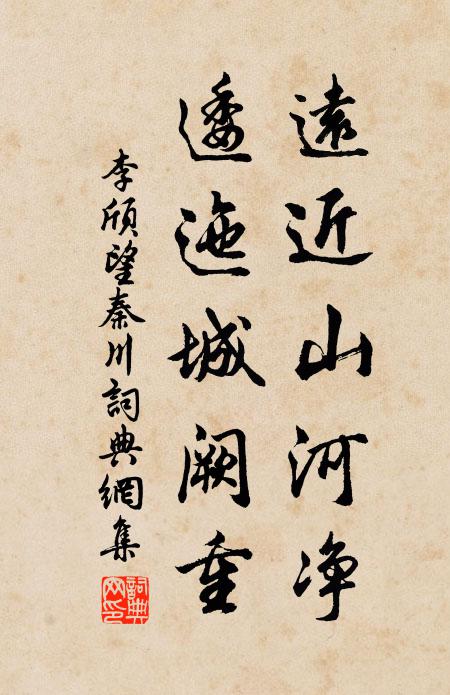 遠近山河净
逶迤城阙重
李頎望秦川詞典網集
詞典网印